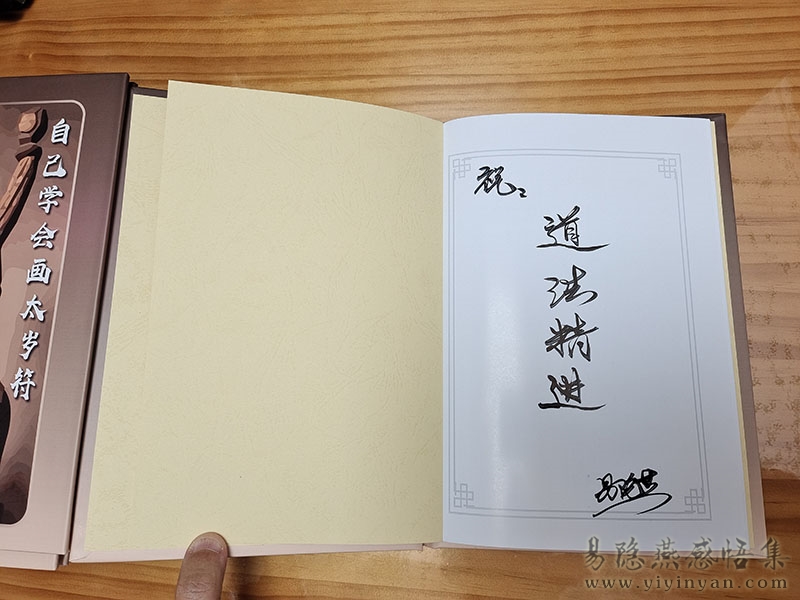 自己学会画太岁符
祝：
道法精进
易隐燕感悟集
www.yiyinyan.com